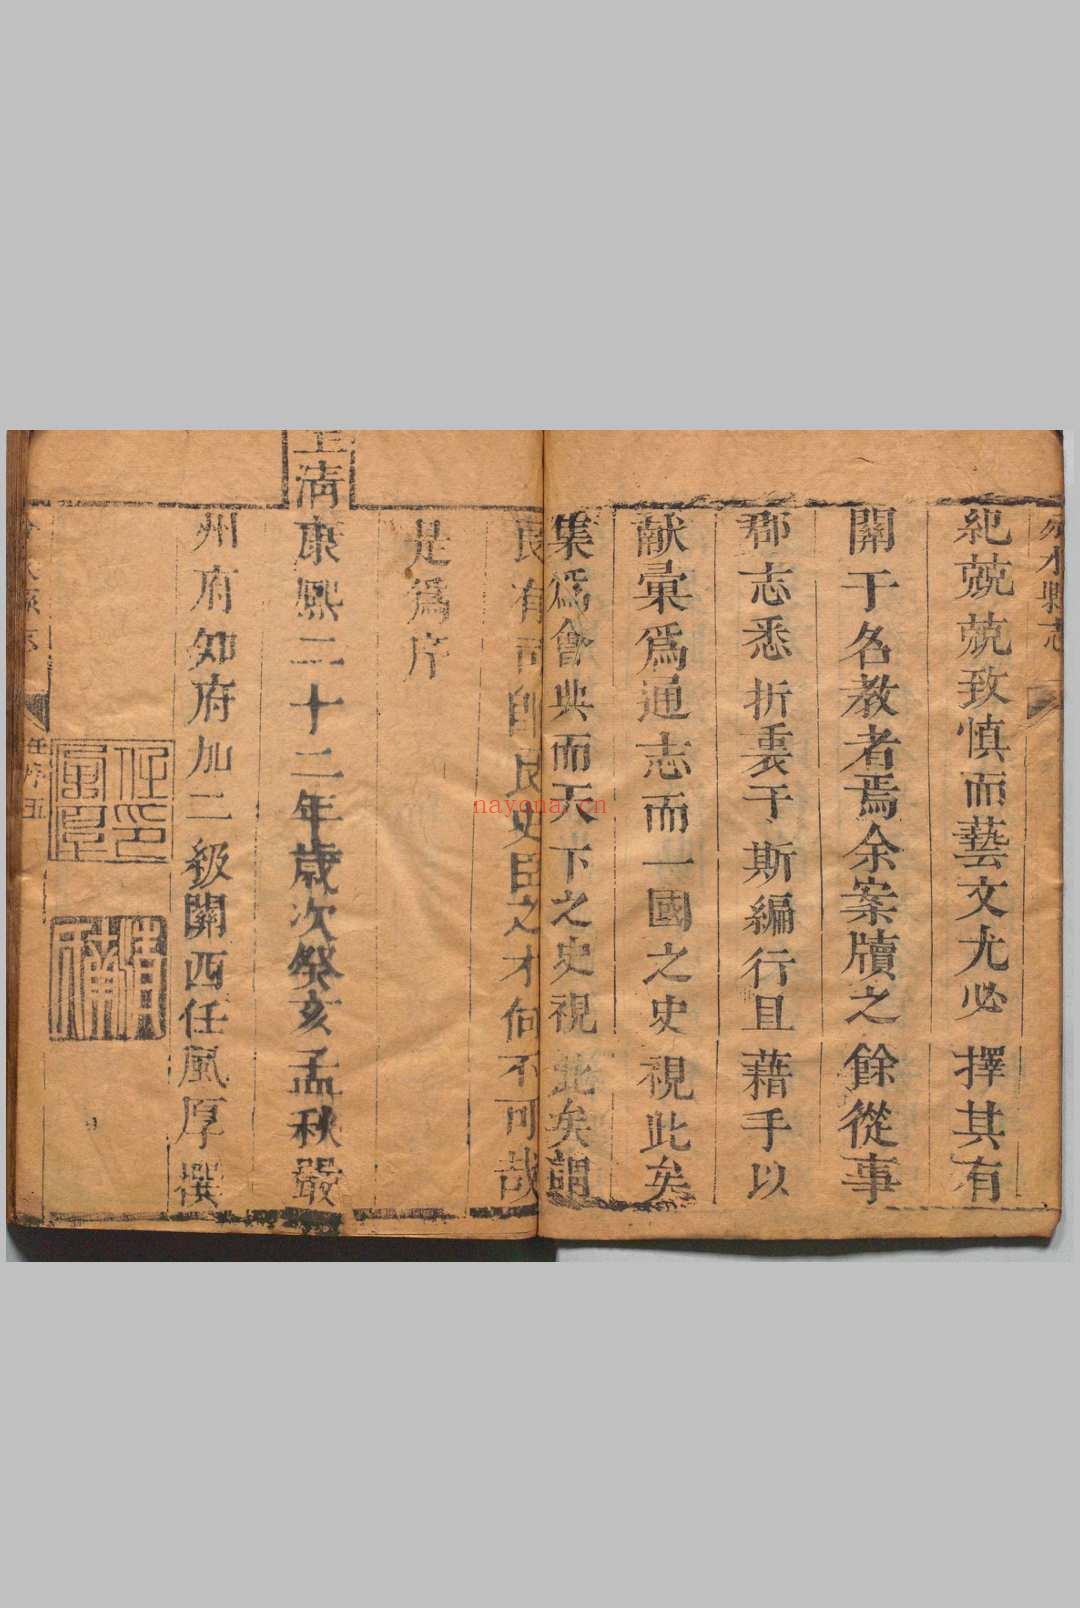 水縣志
紀兢兢致慎而藝文尤必擇其有
關于名教者焉余案牘之餘從事
郡志悉折衷于斯編行且藉手以
獻彙為通志而一國之史視此矣
集為會典而天下之史視此矣謂
良有司即良史臣之才何不可哉
是為序
皇清康熙二十二年歲次癸亥孟秋嚴
州府知府加二級關西任風厚撰
任序 五
nayona.cn